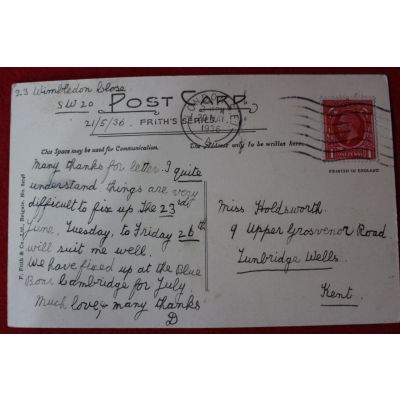 23 Wimbledon Close
SW 20
POST CARD
21/5/36. FRITH'S SERIES.
1936
This Space may be used for Communication.
The Address only to be written here.
POSTAGE REVENUE
ONE PENNY
PRINTED IN ENGLAND
F. Frith & Co., Ltd., Reigate.
Many thanks for letter. I quite
understand things are very
difficult to fix up. The 23rd
June, Tuesday, to Friday 26th
will suit me well.
We have fixed up at the Blue
Boar Cambridge for July.
Much love, & many thanks
D
Miss Holdsworth.
9 Upper Grosvenor Road
Tunbridge Wells.
Kent.